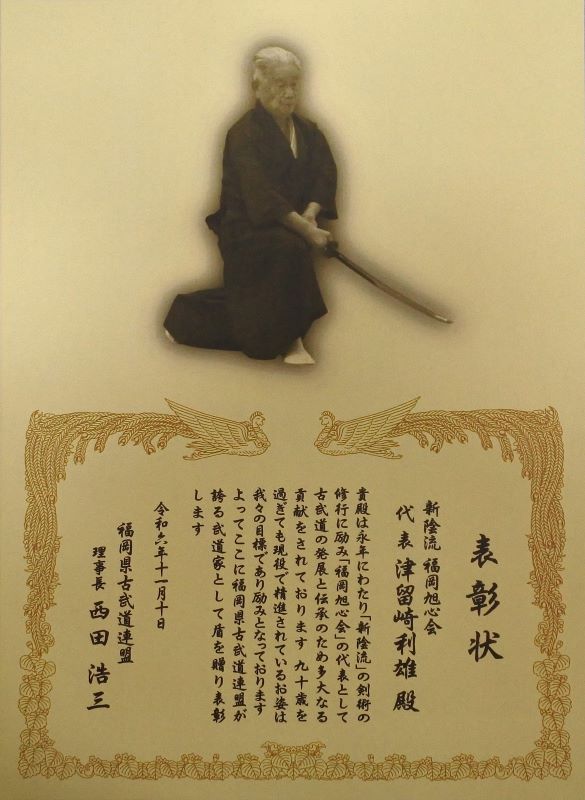 表彰状
新陰流 福岡旭心会
代表 津留崎利雄 殿
貴殿は永年にわたり「新陰流」の剣術の
修行に励み「福岡旭心会」の代表として
古武道の発展と伝承のため多大なる
貢献をされております 九十歳を
過ぎても現役で精進されているお姿は
我々の目標であり励みとなっております
よってここに福岡県古武道連盟が
誇る武道家として盾を贈り表彰
します
令和六年十一月十日
福岡県古武道連盟
理事長 西田 浩三